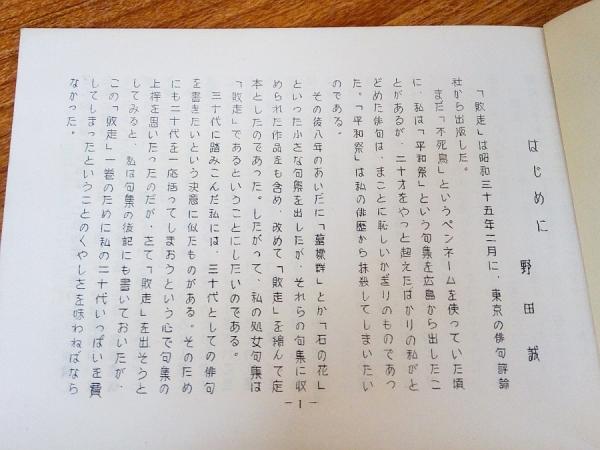 はじめに　野田　誠
「敗走」は昭和三十五年二月に、東京の俳句評論
社から出版した。
まだ「不死鳥」というペンネームを使っていた頃
に、私は「平和祭」という句集を広島から出したこ
とがあるが、二十才をやっと超えたばかりの私がと
どめた俳句は、まことに恥しいかぎりのものであっ
た。「平和祭」は私の俳歴から抹殺してしまいたい
のである。
その後八年のあいだに「墓標群」とか「石の花」
といった小さな句集を出したが、それらの句集に収
められた作品をも含め、改めて「敗走」を編んで定
本としたのであった。したがって、私の処女句集は
「敗走」であるということにしたいのである。
三十代に踏みこんだ私には、三十代としての俳句
を書きたいという決意に似たものがある。そのため
にも二十代を一応括ってしまおうという心で句集の
上梓を思いたったのだが、さて「敗走」を出そうと
してみると、私は句集の後記にも書いておいたが、
この「敗走」一巻のために私の二十代いっぱいを費
してしまったということのくやしさを味わねばなら
なかった。
－1－